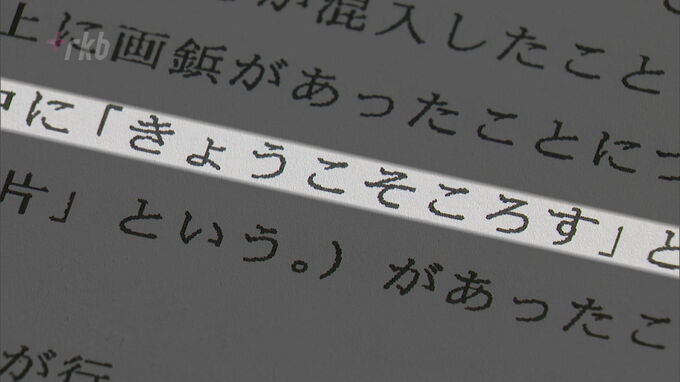 rkb
が混入したこと
上に画鋲があったことにつ
中に「きょうこそころす」と
片」という。）があったこ
が行